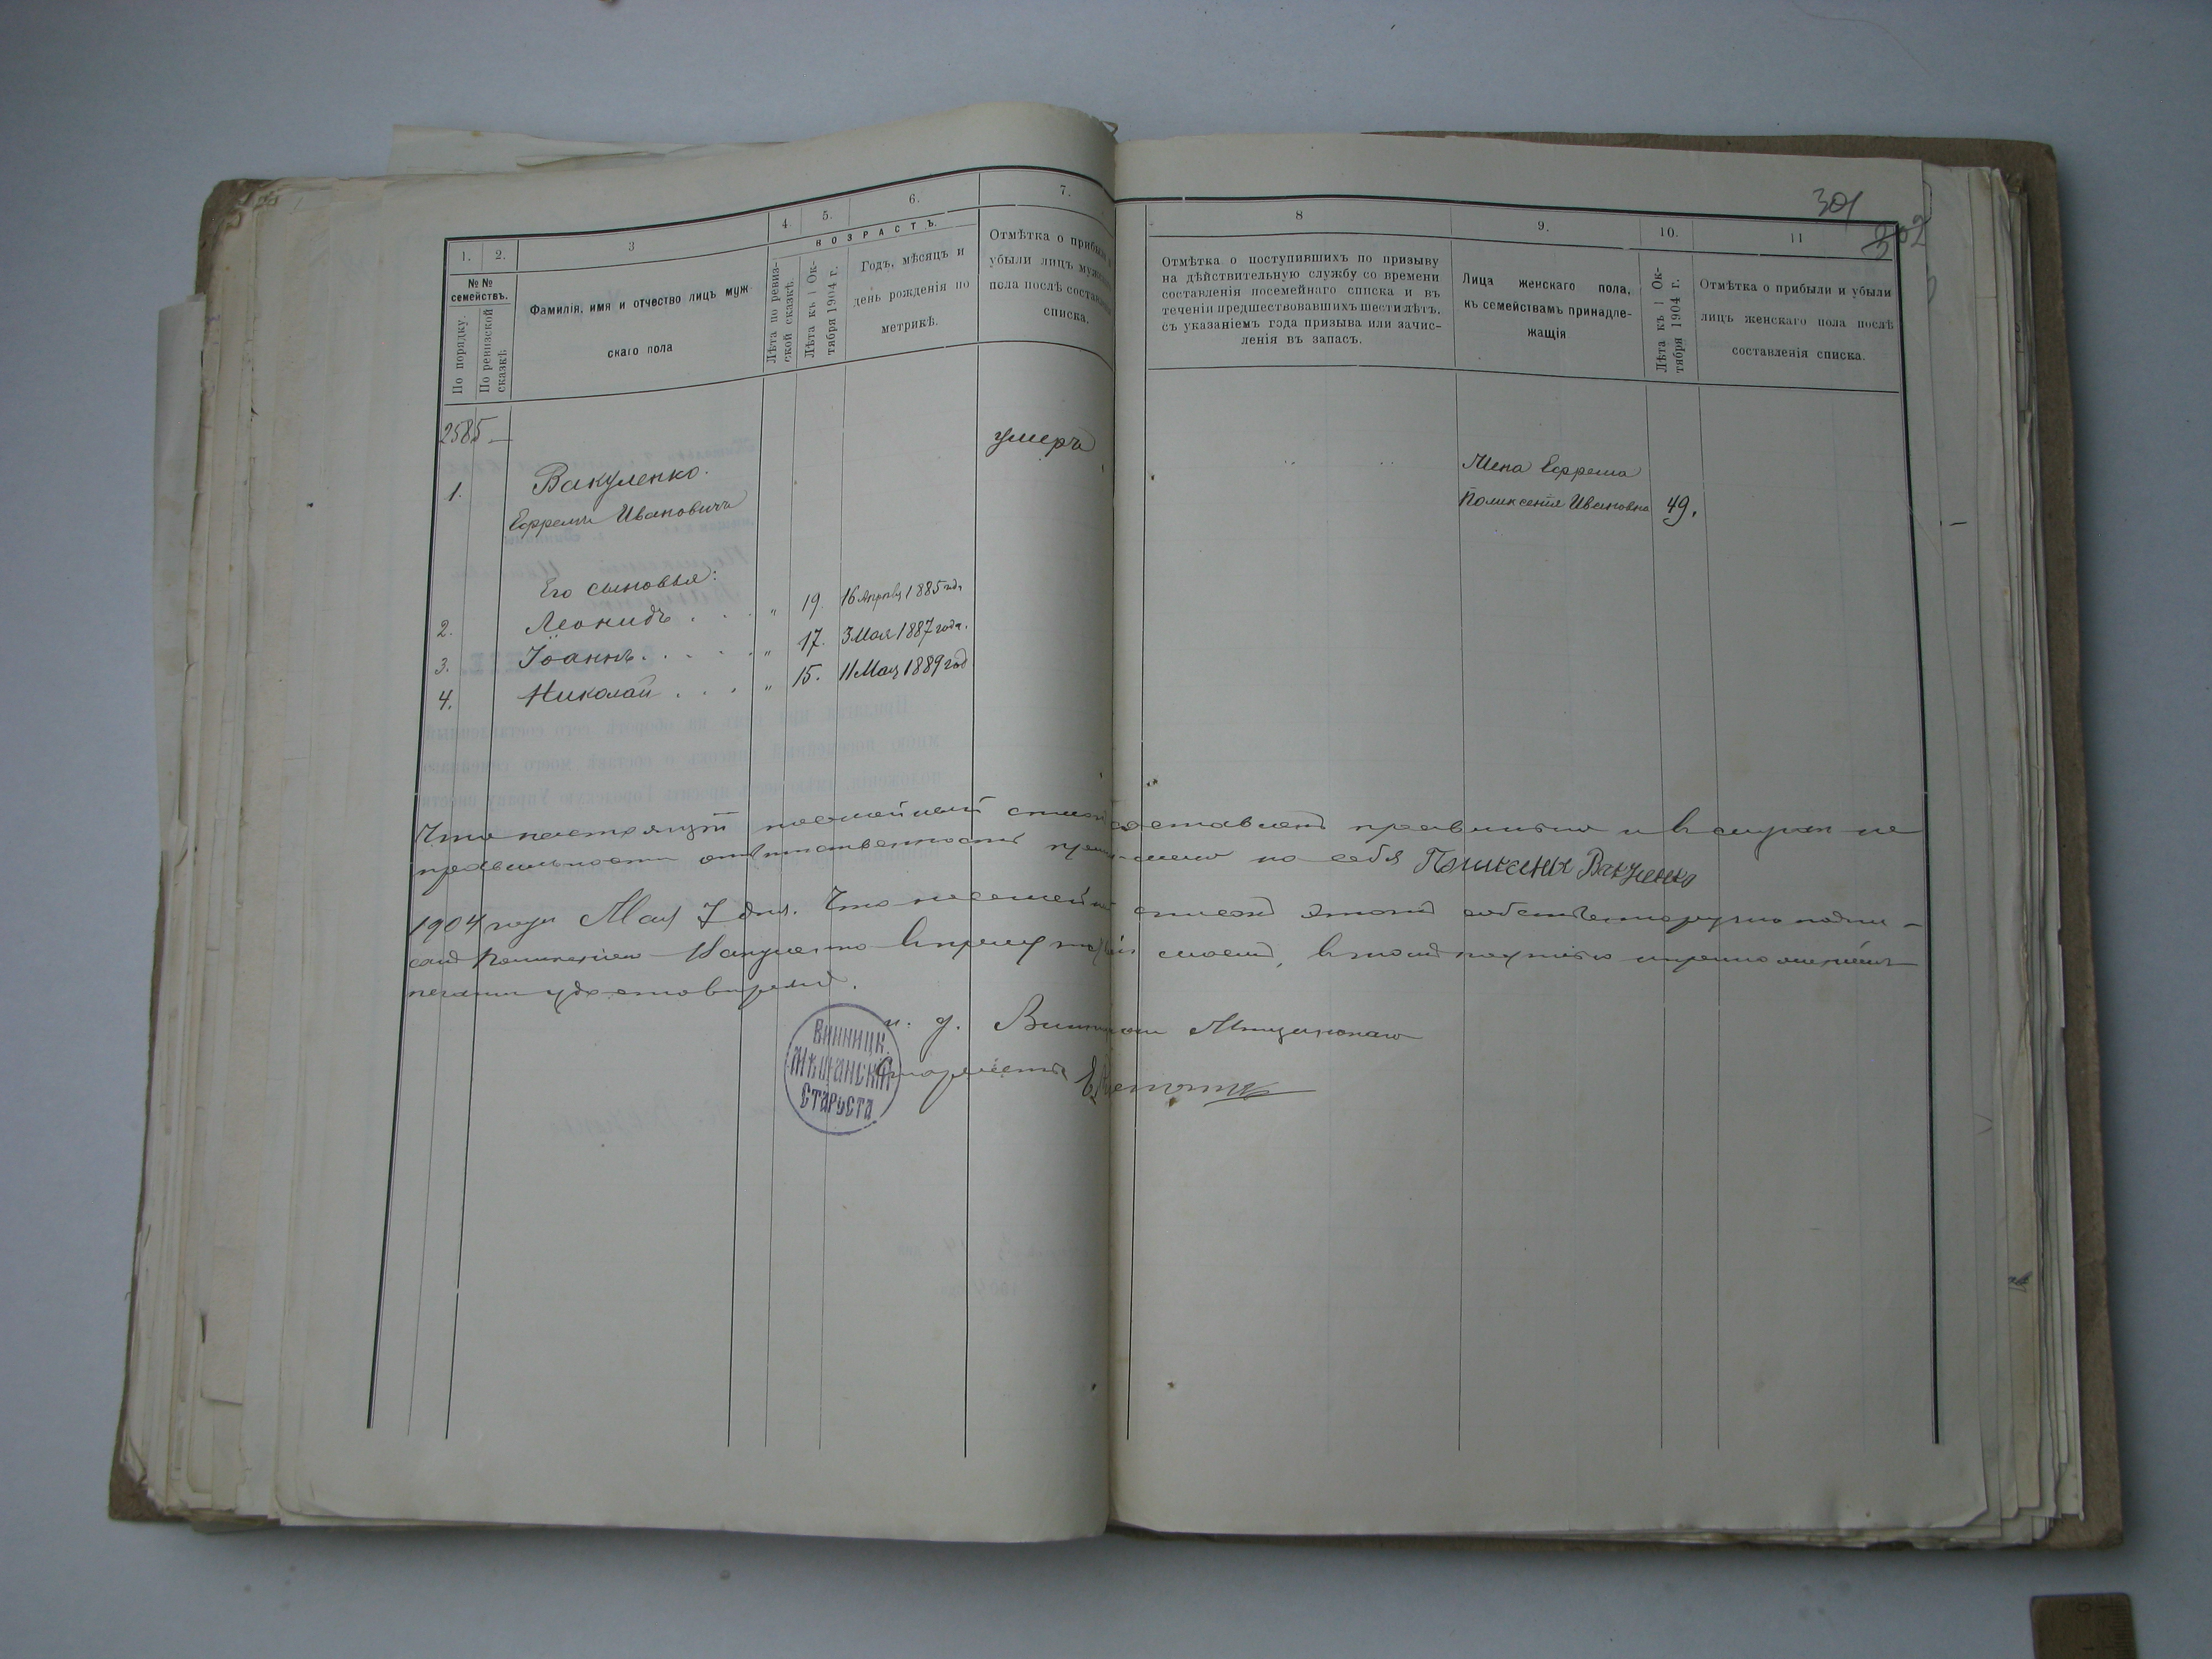 301
302
1. 2. 3 4. 5. 6. 7.
№ № семействъ.
По порядку.
По ревизской сказкѣ
Фамилія, имя и отчество лицъ муж-
скаго пола
ВОЗРАСТЪ.
Лѣта по ревиз-
ской сказкѣ.
Лѣта къ 1 Ок-
тября 1904 г.
Годъ, мѣсяцъ и
день рожденія по
метрикѣ.
Отмѣтка о прибыли и
убыли лицъ мужскаго
пола послѣ составленія
списка.
8 9. 10. 11
Отмѣтка о поступившихъ по призыву
на дѣйствительную службу со времени
составленія посемейнаго списка и въ
теченіи предшествовавшихъ шести лѣтъ,
съ указаніемъ года призыва или зачис-
ленія въ запасъ.
Лица женскаго пола,
къ семействамъ принадле-
жащія
Лѣта къ 1 Ок-
тября 1904 г.
Отмѣтка о прибыли и убыли
лицъ женскаго пола послѣ
составленія списка.
2585
умеръ
1. Вакуленко.
Ефремъ Ивановичъ
Жена Ефрема
Поликсенія Ивановна 49.
Его сыновья:
2. Леонидъ . . . " 19. 16 Апрѣля 1885 год.
3. Іоаннъ. . . . . " 17. 3 Мая 1887 года.
4. Николай . . . " 15. 11 Мая 1889 год
Что настоящій посемейный списокъ составленъ правильно и въ случаѣ не
правильности отвѣтственность принимаю на себя Поликсенія Вакуленко
1904 года Мая 7 дня. Что посемейный списокъ этотъ собственноручно подпи-
санъ Поликсеніею Вакуленко въ присутствіи моемъ, въ томъ подписью и приложеніемъ
печати удостовѣряю.
и. д. Винницкаго Мѣщанскаго
Старосты
Винницк.
Мѣщанскій
Староста